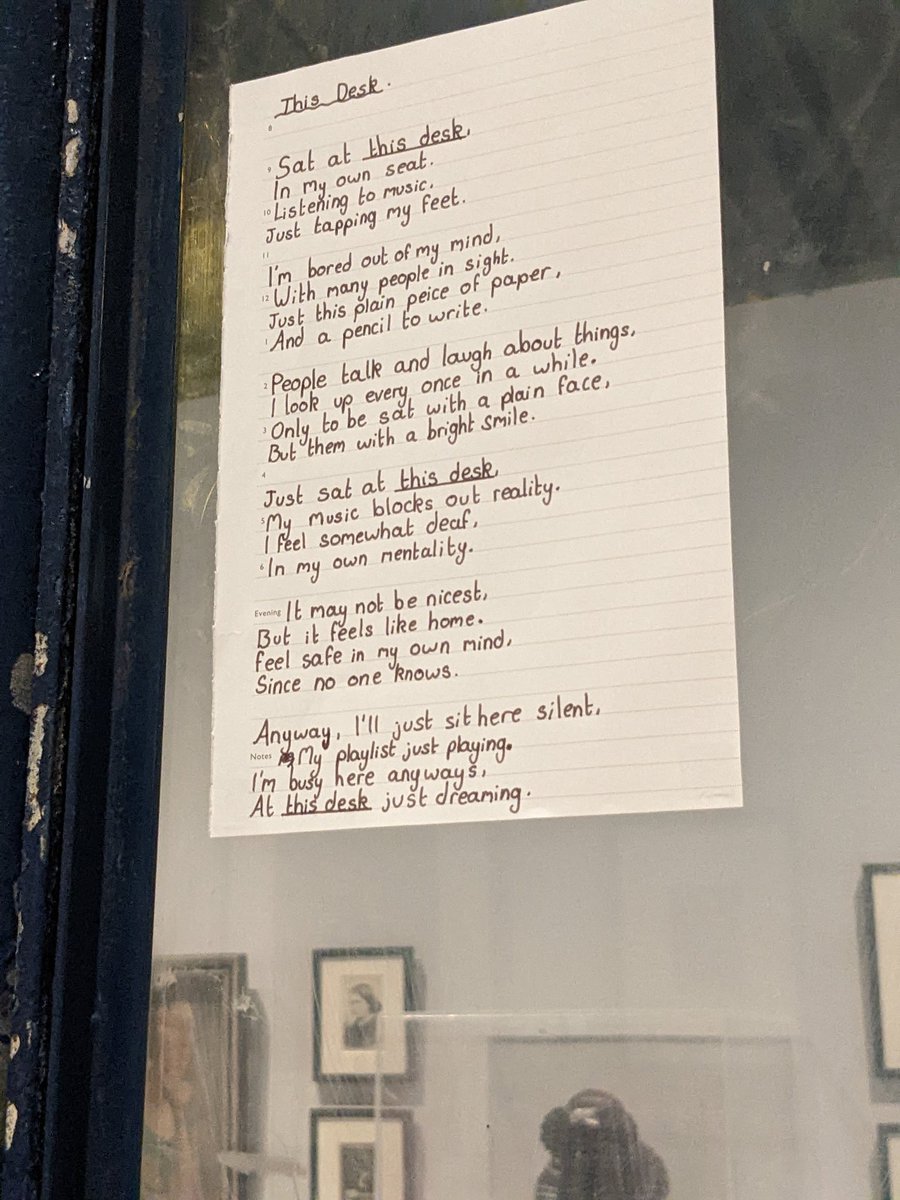 This Desk.
8
9 Sat at this desk,
In my own seat.
10 Listening to music,
Just tapping my feet.
11
I'm bored out of my mind,
12 With many people in sight.
Just this plain peice of paper,
1 And a pencil to write.
2 People talk and laugh about things,
I look up every once in a while.
3 Only to be sat with a plain face,
But them with a bright smile.
4
Just sat at this desk,
5 My music blocks out reality.
I feel somewhat deaf,
6 In my own mentality.
Evening It may not be nicest,
But it feels like home.
Feel safe in my own mind,
Since no one knows.
Anyway, I'll just sit here silent,
Notes My playlist just playing.
I'm busy here anyways,
At this desk just dreaming.